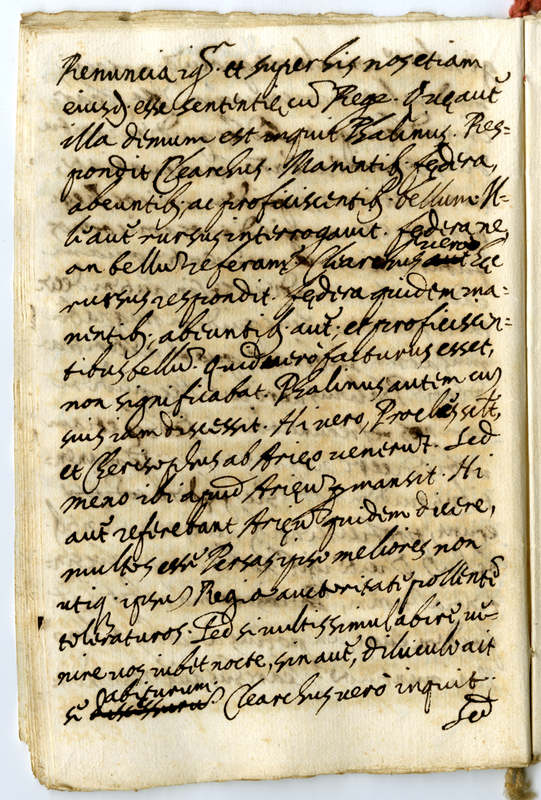 Renuncia igr. et super his nos etiam
eiusd. esse sententię cū Rege. Quę aut
illa demum est inquit Phalinus. Res=
pondit Clearchus. Manentib. fędera,
abeuntib. ac proficiscentib. bellum. Il=
li aut rursus interrogavit. fędera ne,
an bellū referam? Clearchus vero hęc
rursus respondit. fędera quidem ma=
nentib, abeuntib. aut, et proficiscen=
tibus bellū. quid vero facturus esset,
non significabat. Phalinus autem cū
suis iam discessit. Hi vero, Procles scilt,
et Cherisophus ab Arięo venerūt. Sed
meno ibi apud Arięū pmansit. Hi
aut referebant Arięū quidem dicere,
multos esse Persas ipso meliores non
utiq. ipsū Regia auctoritate pollentē
toleraturos. Sed si vultis simul abire, ve=
nire vos iubet nocte, sin aut, diluculo ait
se abiturum. Clearchus vero inquit.
Sed